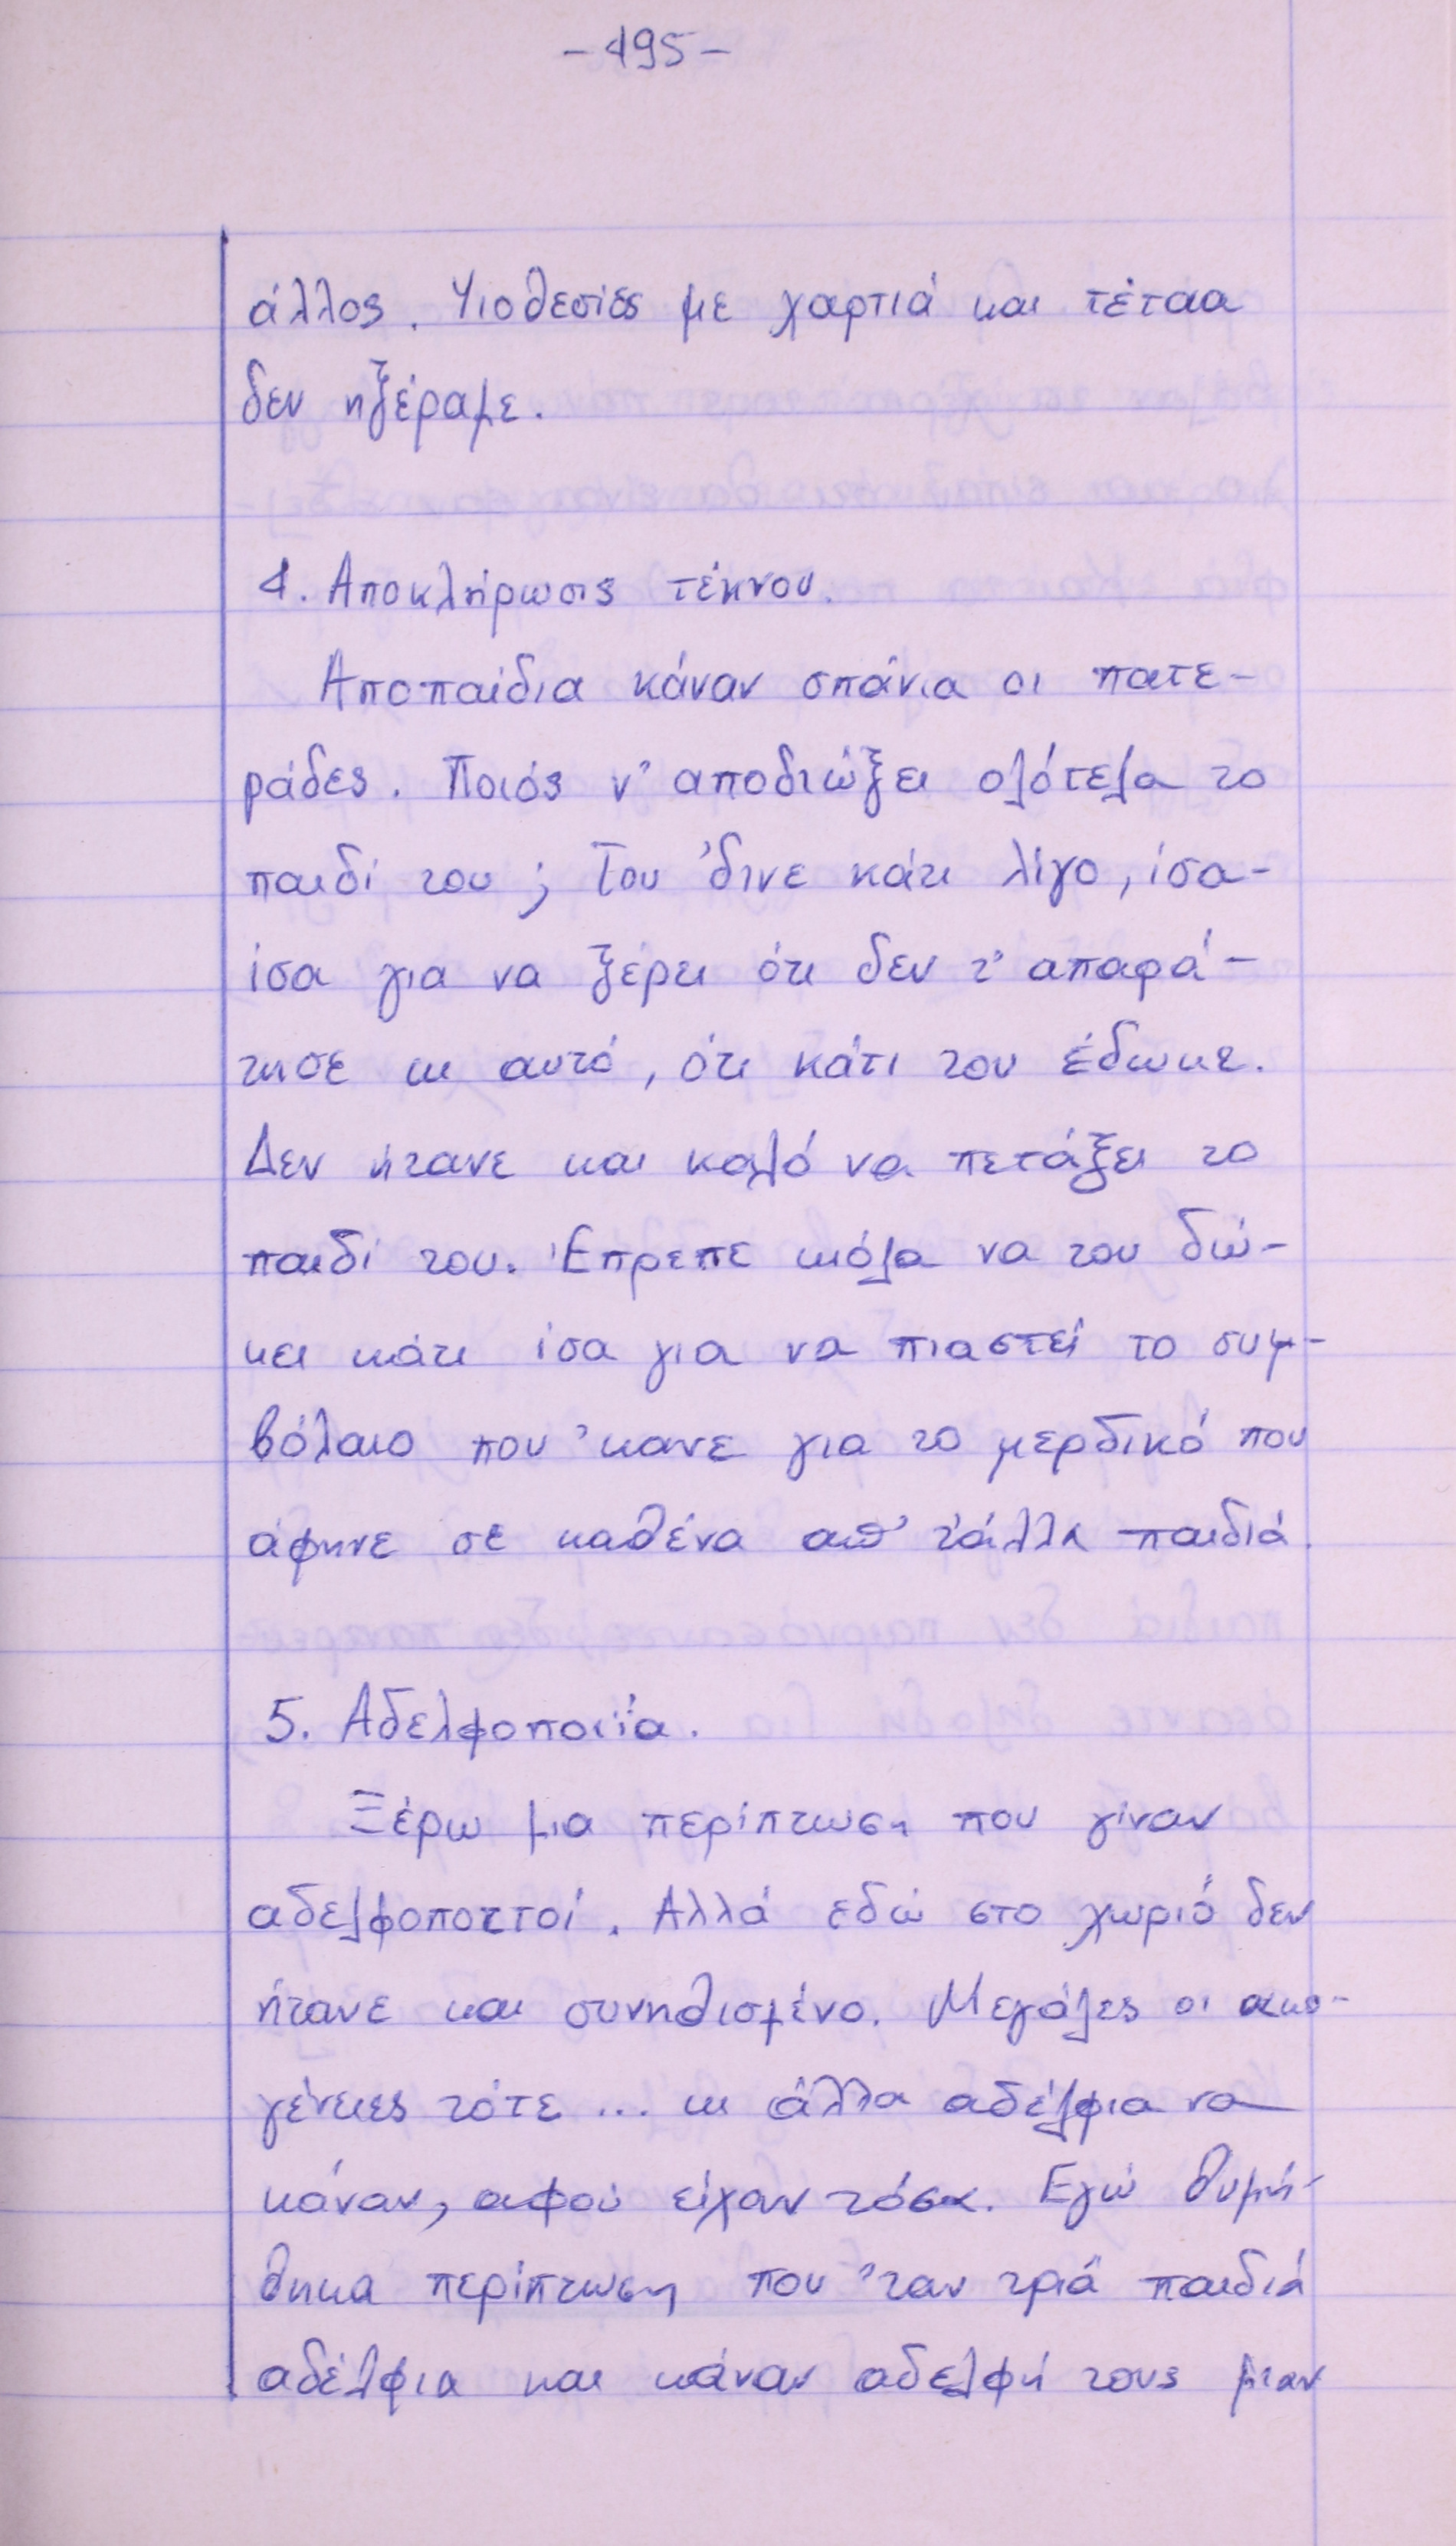 -495-
άλλος. Υιοθεσίες με χαρτιά και τέτοια
δεν ηξέραμε.
4. Αποκλήρωσις τέκνου.
Αποπαίδια κάναν σπάνια οι πατε-
ράδες. Ποιός ν' αποδιώξει ολότελα το
παιδί του; Του 'δινε κάτι λίγο, ίσα-
ίσα για να ξέρει ότι δεν τ' απαρά-
τησε κι αυτό, ότι κάτι του έδωκε.
Δεν ήτανε και καλό να πετάξει το
παιδί του. Έπρεπε κιόλα να του δώ-
κει κάτι ίσα για να πιαστεί το συμ-
βόλαιο που 'κανε για το μερδικό που
άφηνε σε καθένα απ' τάλλα παιδιά.
5. Αδελφοποιΐα.
Ξέρω μια περίπτωση που γίναν
αδελφοποιτοί. Αλλά εδώ στο χωριό δεν
ήτανε και συνηθισμένο. Μεγάλες οι οικο-
γένειες τότε... κι άλλα αδέλφια να
κάναν, αφού είχαν τόσα. Εγώ θυμή-
θηκα περίπτωση που 'ταν τριά παιδιά
αδέλφια και κάναν αδελφή τους μιαν